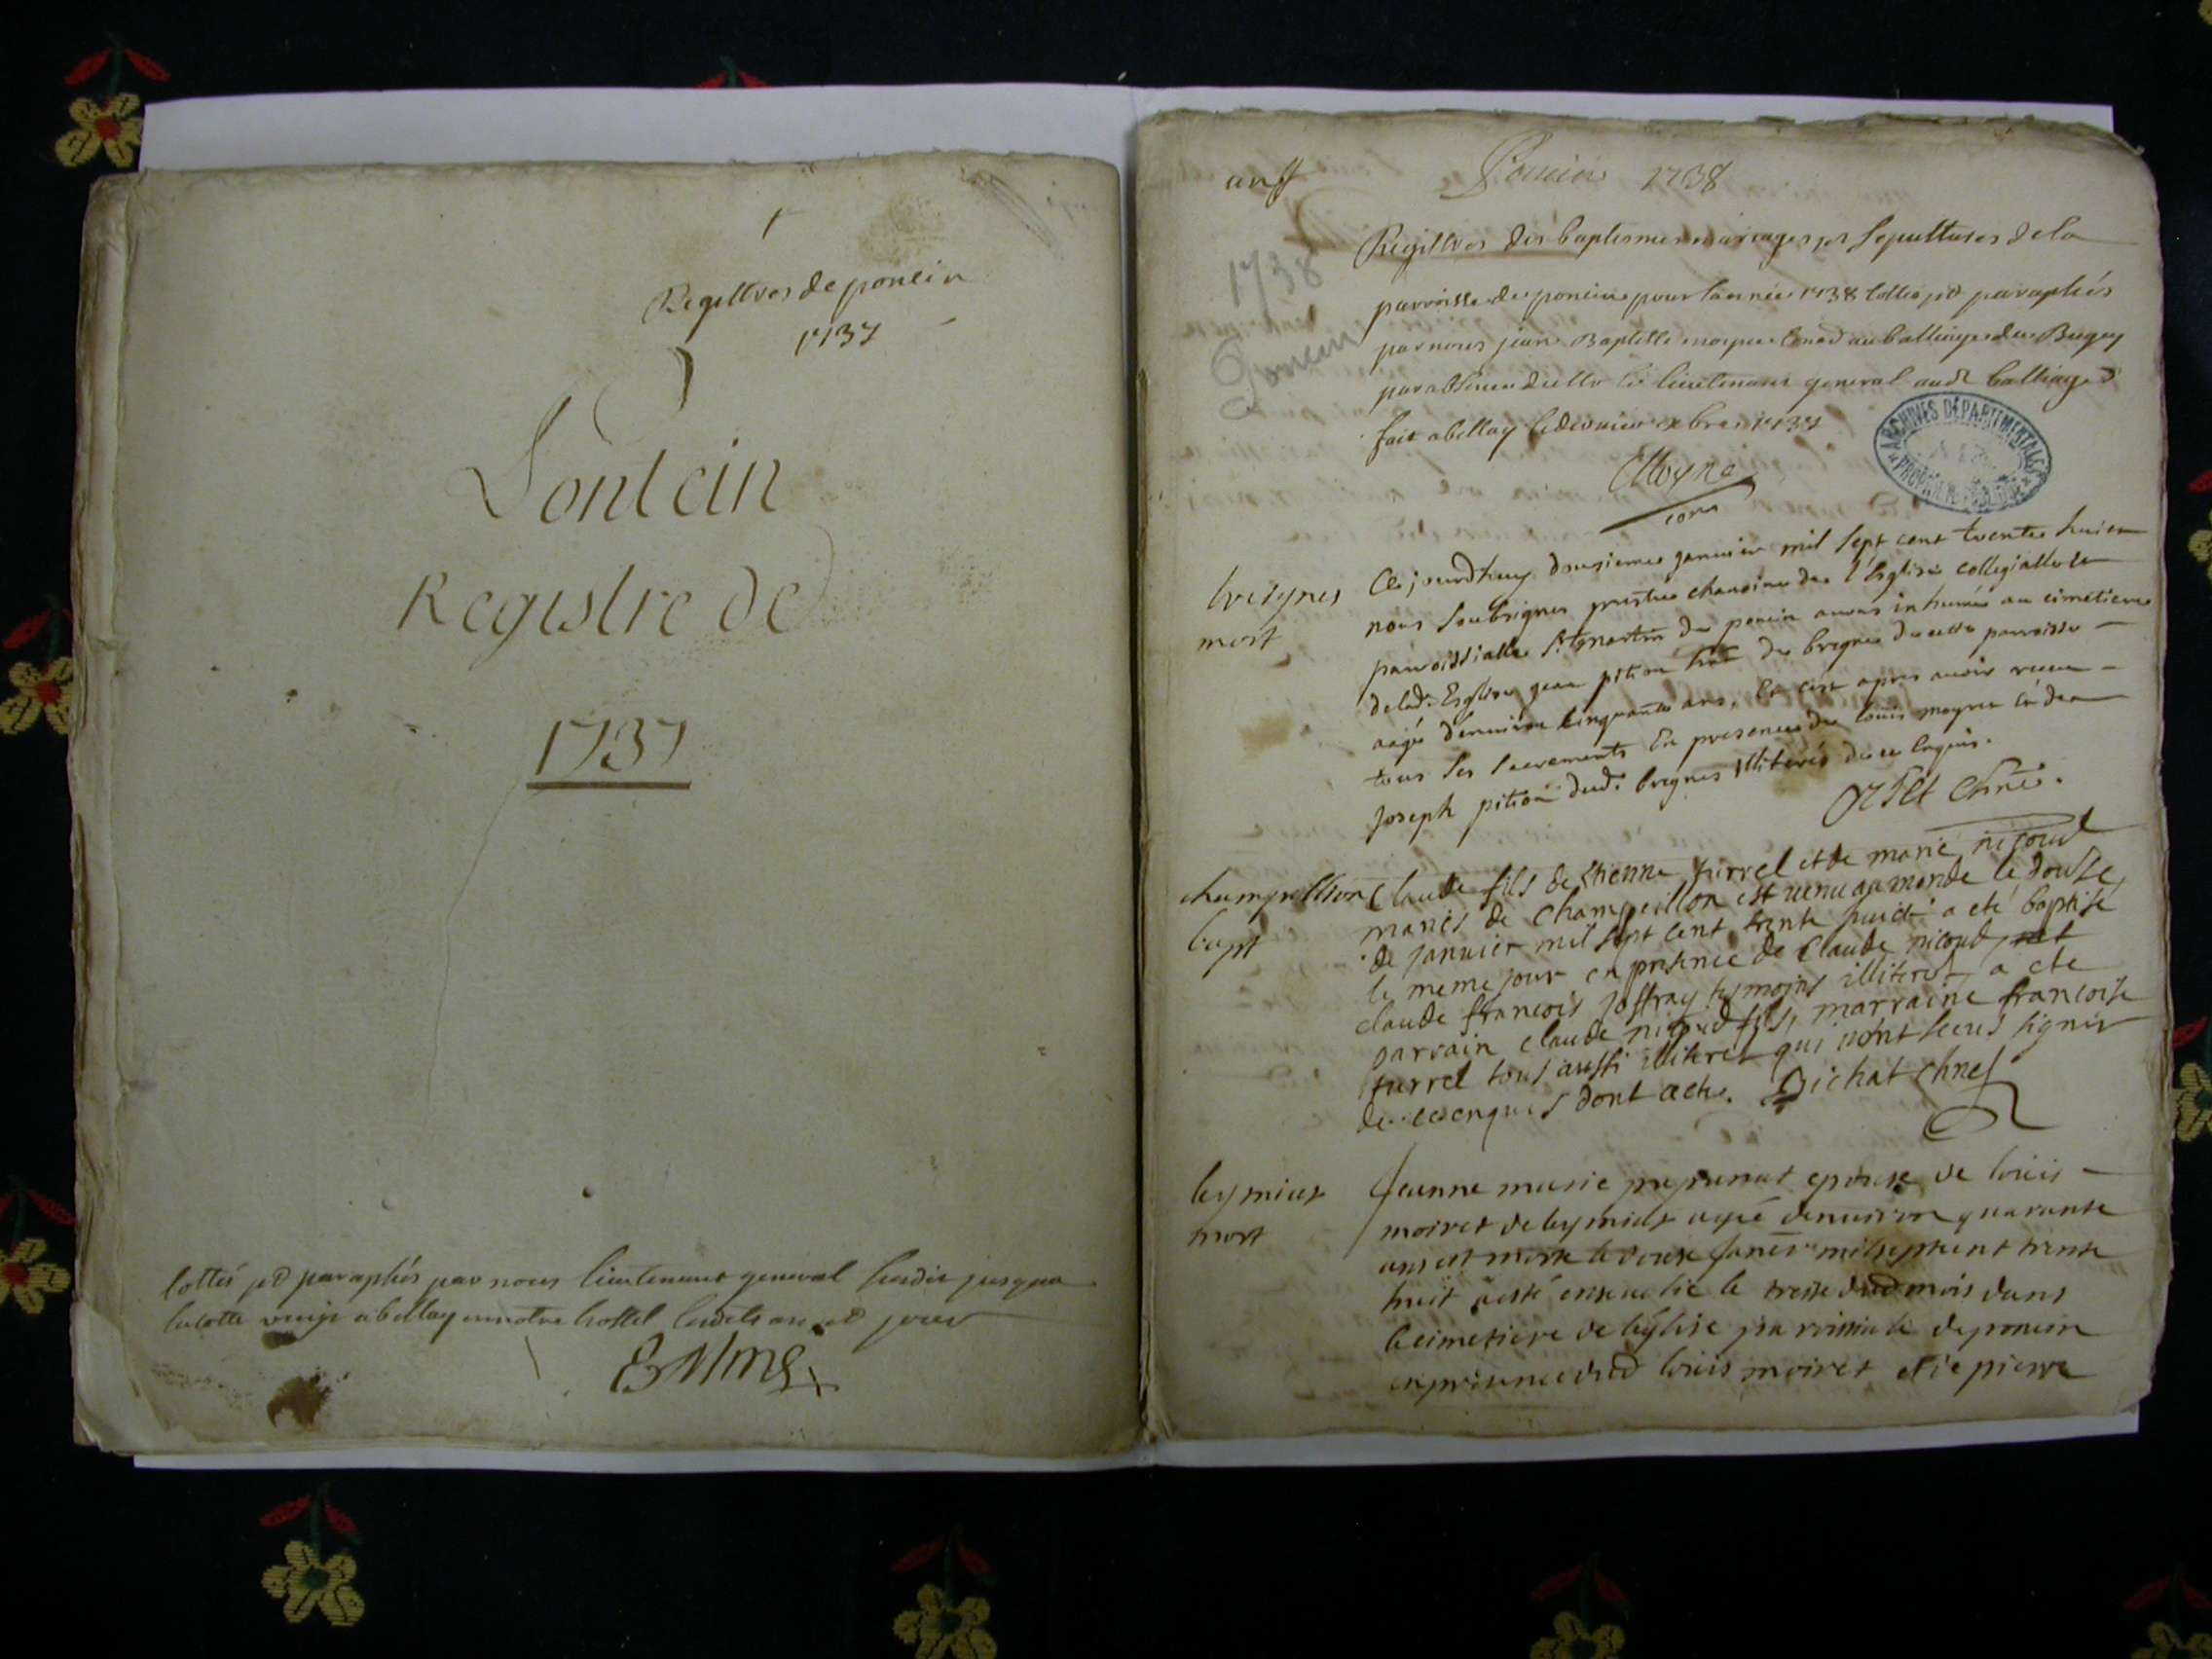 Registres de poncin
1737
Pontcin
Registre de
1737
Cottés et paraphés par nous lieutenant general susdit jusqua
la cotte vingt a bellay en notre hostel lesdits an et jour
Poncin 1738
1738
Poncin
Registres des baptesmes mariages et sepultures de la
parroisse de poncin pour lannée 1738 Cottés et paraphés
par nous jean Baptiste au balliage du Bugey
par absence du lieutenant general audt balliage
fait a bellay le dernier xbre 1737
ARCHIVES DÉPARTEMENTALES
Moyne
brignes
mort
Ce jourdhuy dousieme janvier mil sept cent trente huict
nous soubsignes prestre chanoine de l'Eglise collegialle et
parroissialle St martin de poncin avons inhumé au cimetiere
de lad. Eglise jean pition de brignes de cette parroisse
aagé d'environ cinquante ans, Et c'est apres avoir receu
tous ses sacrements En presence de louis moyret Et de
Joseph pition dud. brignes illiterés de ce Enquis.
champellion
bapt
Claude fils de Etienne furrel et de marie nicoud
mariés de Champeillon est venu au monde le douse
de janvier mil sept cent trente huict a eté baptisé
le meme jour en presence de Claude nicoud, et
claude francois joffray temojns illiteres a ete
parrain claude nicoud fils, marraine francoise
furrel tous aussi illiteres qui n'ont sceus signer
de ce enquis dont acte. Bichat Chne
leymiat
mort
Jeanne marie epouse de louis
moiret de leymiat agé denviron quarante
ans est morte le douse janer mil sept cent trente
huit a esté ensevelie le treise dud mois dans
le cimetiere de leglise parroissiale de poncin
en presence dud louis moiret et de pierre